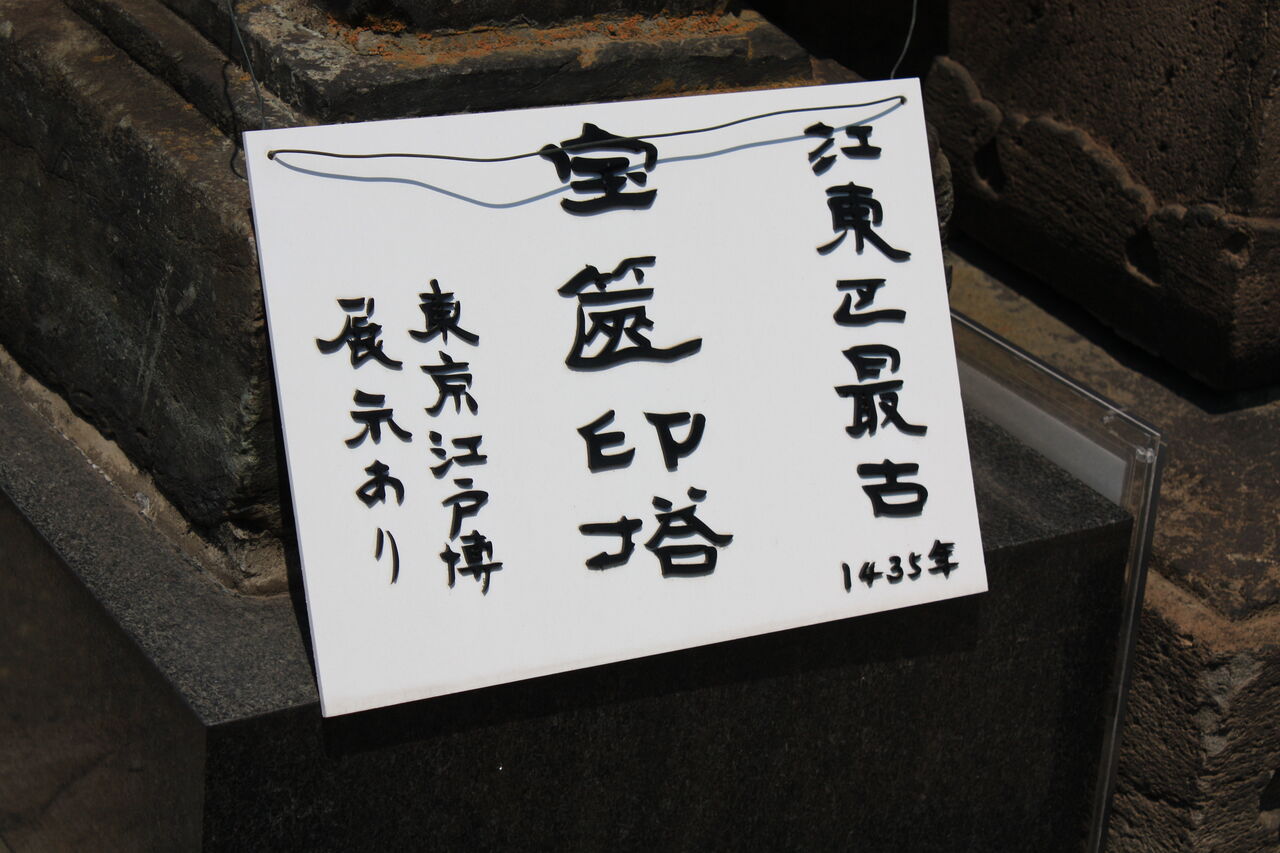 江東区最古
1435年
宝篋印塔
東京江戸博
展示あり